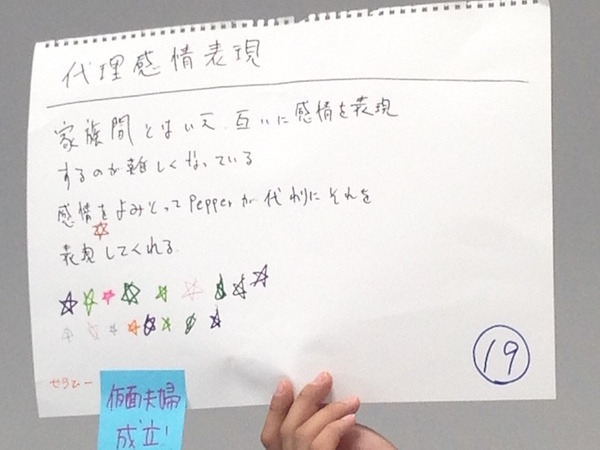 代理感情表現
家族間とはいえ、互いに感情を表現
するのが難しくなっている
感情をよみとってPepperが代わりにそれを
表現してくれる。
19
せらひー
仮面夫婦
成立!